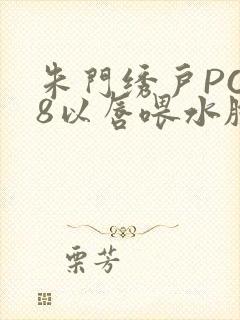 朱門绣戶PO
8以唇喂水腩
栗芳